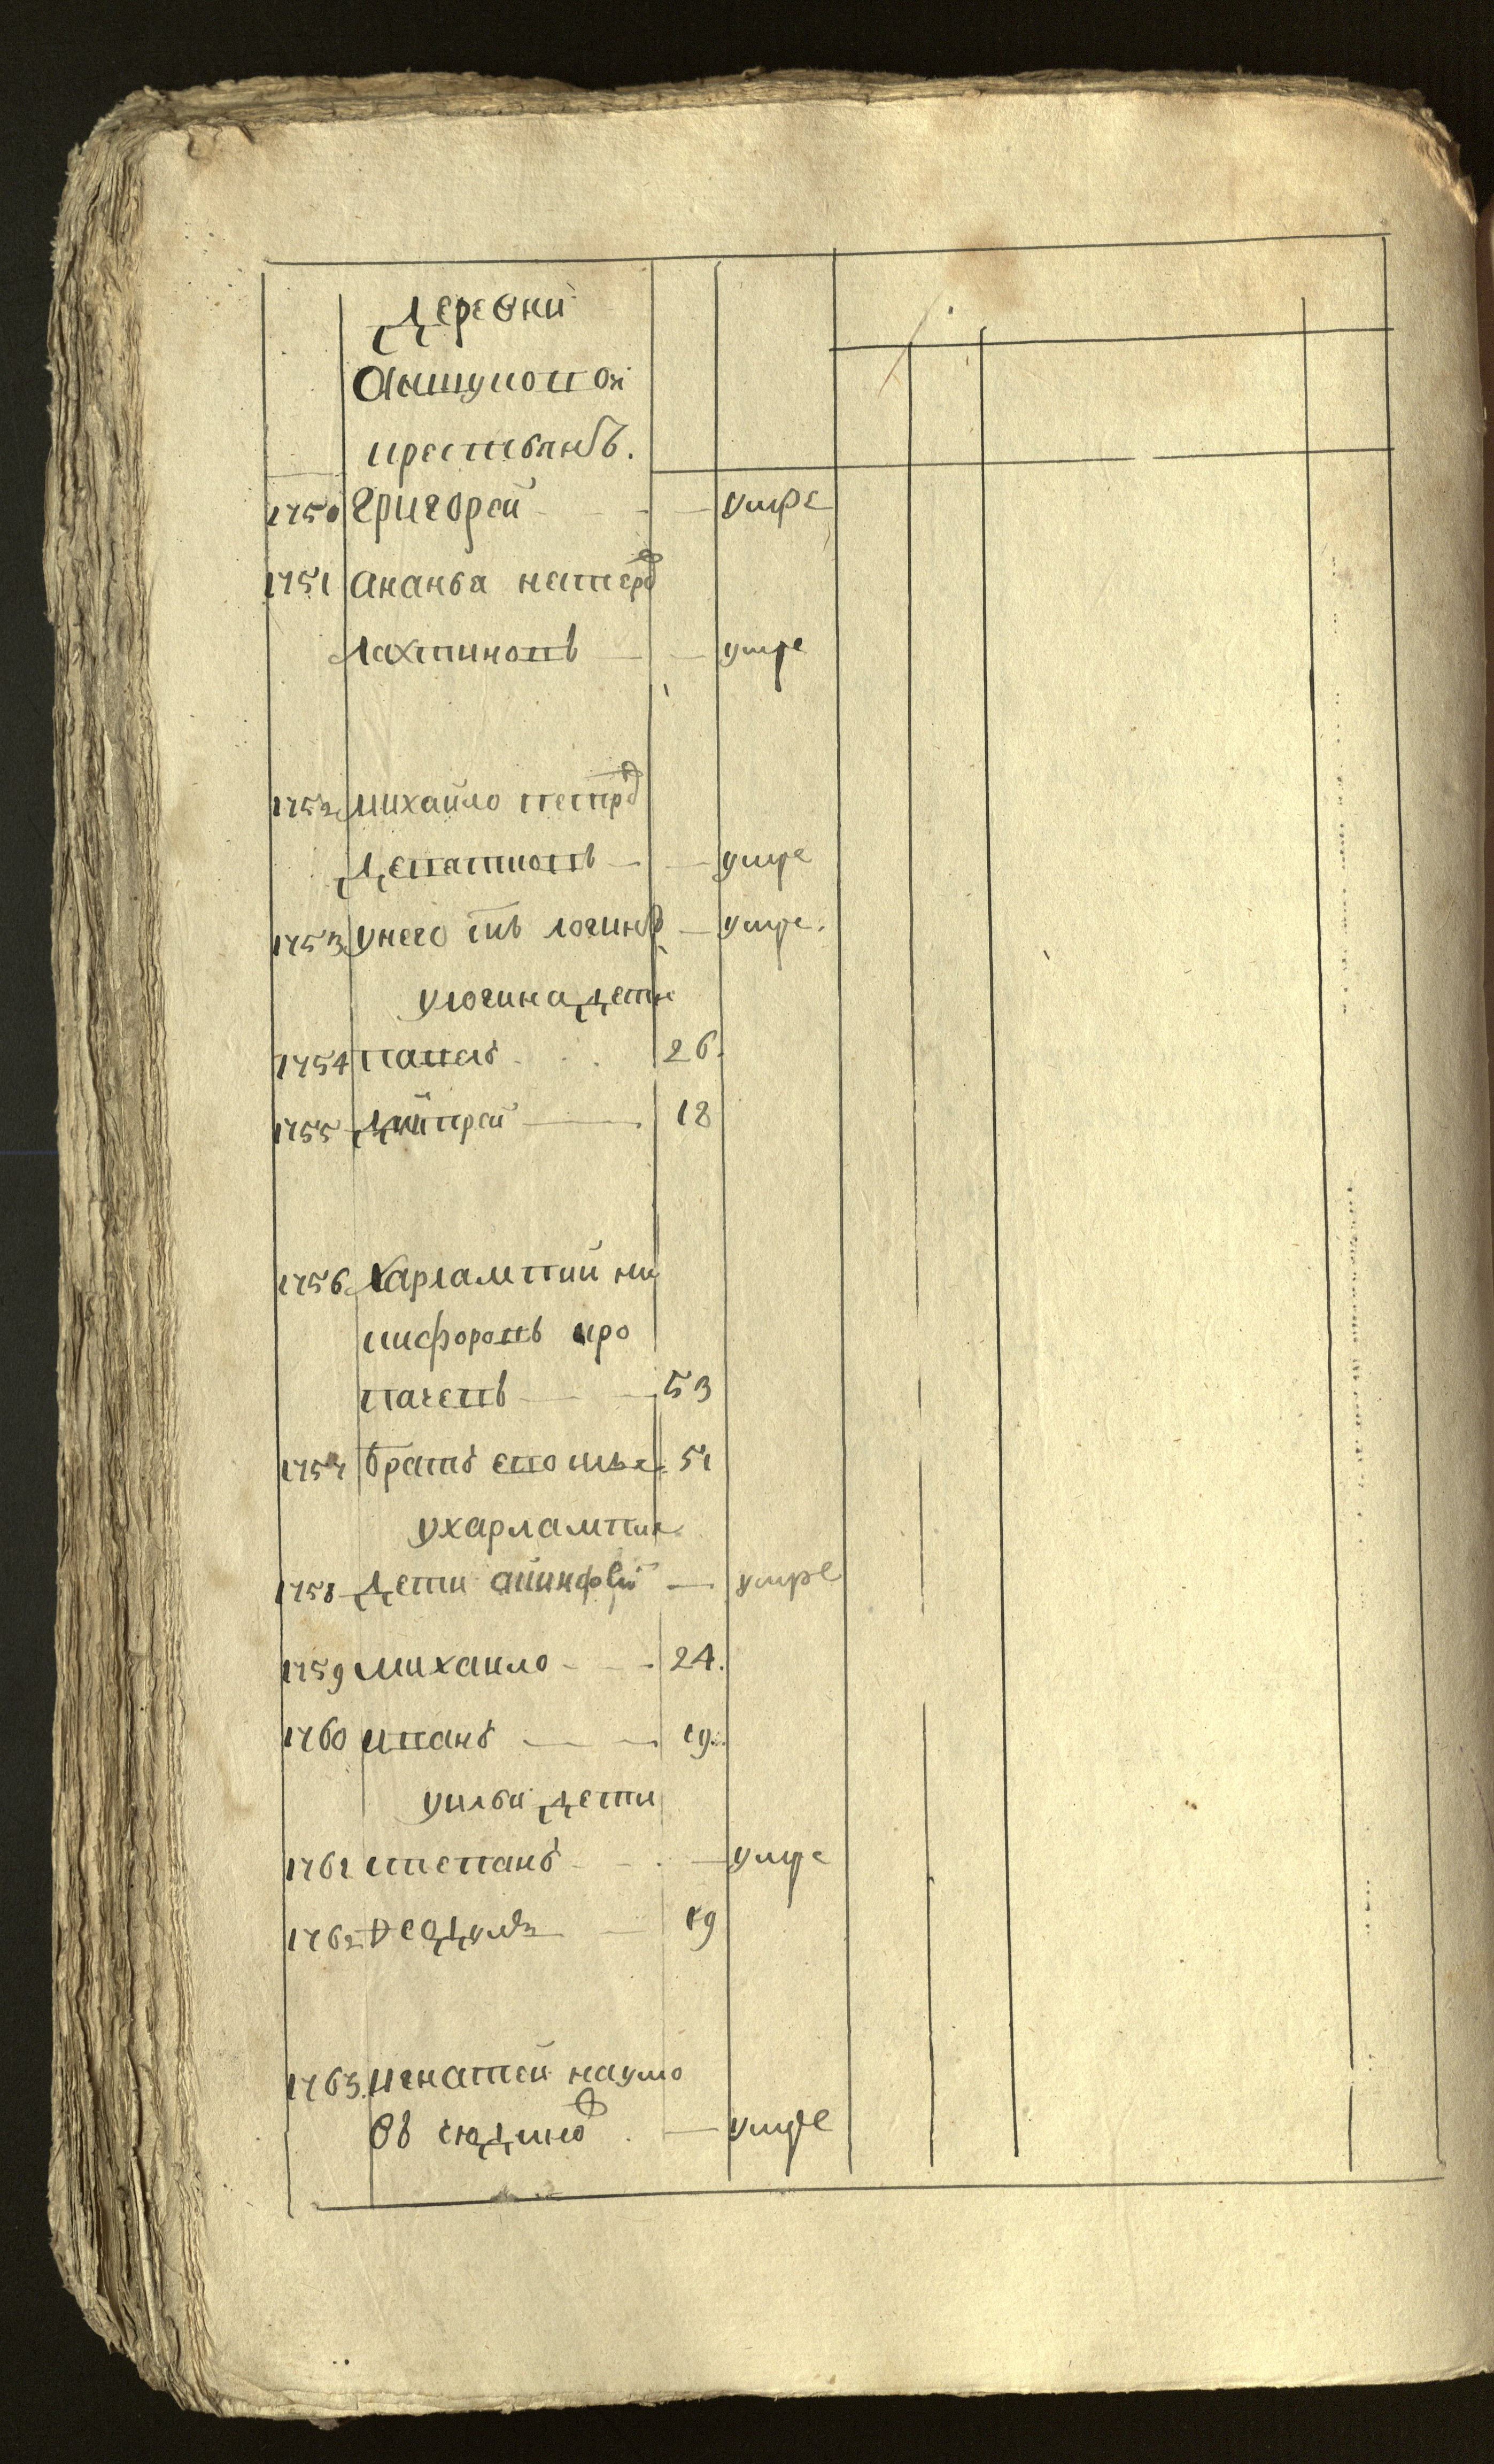 Деревни
крестьянъ.
1750 Григореи — умре
1751 Ананья нестеровъ
Лахтиновъ — умре
1752 михаило петровъ
Девятковъ — умре
1753 унего снъ логинъ — умре.
улогина дети
1754 павелъ 26.
1755 Дмитреи — 18
1756 Харлампии ни
кифоровъ кро
пачевъ — 53
1757 братъ ево илья 51
ухарлампия
1758 дети акинфеи — умре
1759 михаило — 24.
1760 иванъ — 19.
уильи дети
1761 степанъ — умре
1762 Федулъ — 19
1763. игнатеи наумо
въ — умре